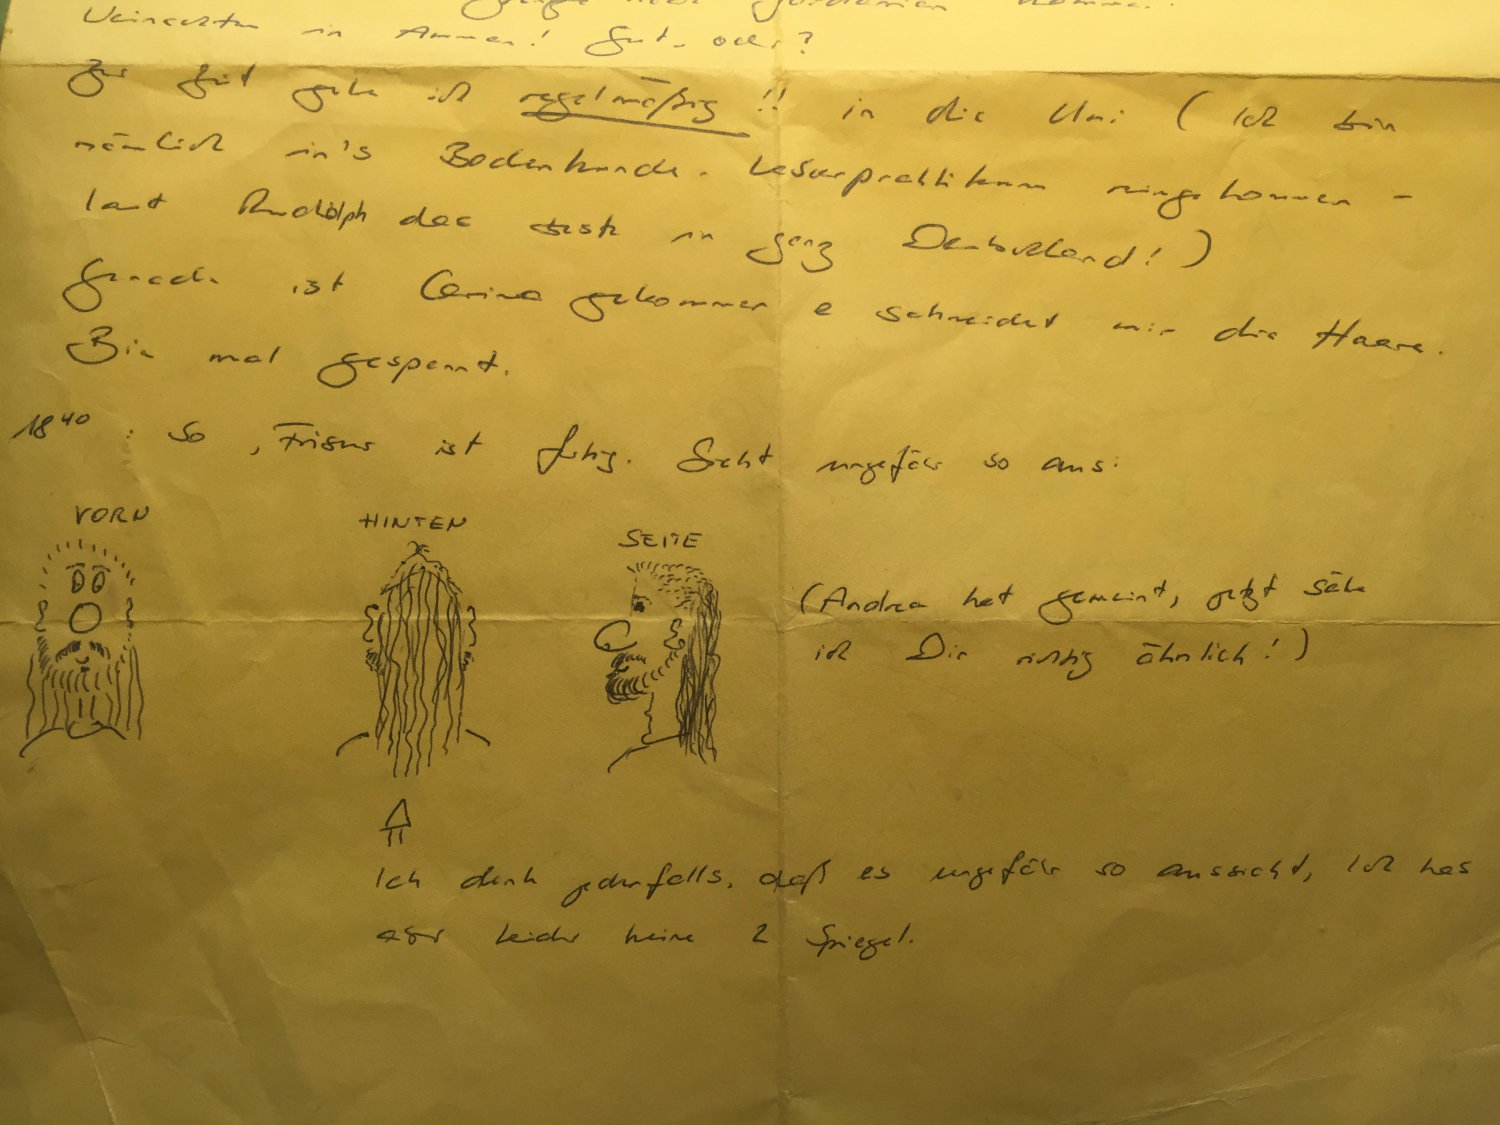 nach Jordanien komme.
Weinachten in Amman! Gut, oder?
Zur Zeit gehe ich regelmäßig!! in die Uni (Ich bin
nämlich in's Bodenkunde-Laborpraktikum reingekommen -
laut Rudolph das beste in ganz Deutschland!)
Gerade ist Carina gekommen & schneidet mir die Haare.
Bin mal gespannt.
18⁴⁰: So, Frisur ist fertig. Seht ungefär so aus:
VORN HINTEN SEITE
(Andrea hat gemeint, jetzt sähe
ich Dir richtig ähnlich!)
Ich denk jedenfalls, daß es ungefär so aussieht, Ich hab
aber leider keine 2 Spiegel.